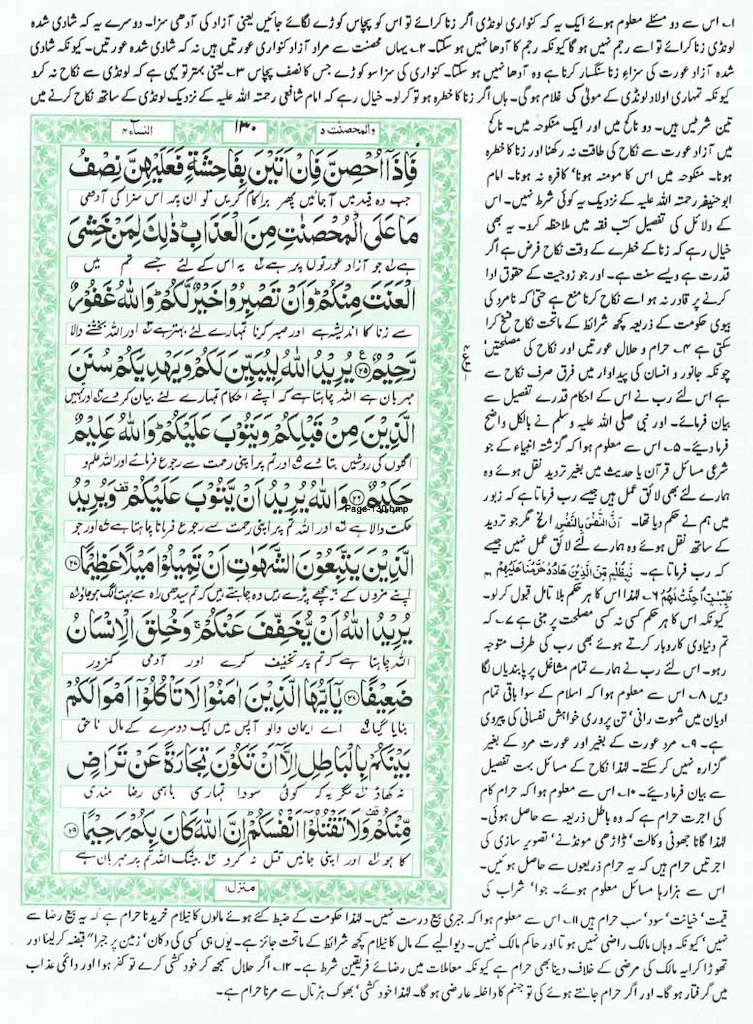 ۱۔ اس سے دو مسئلے معلوم ہوئے ایک یہ کہ کنواری لونڈی اگر زنا کرائے تو اس کو پچاس کوڑے لگائے جائیں یعنی آزاد کی آدھی سزا۔ دوسرے یہ کہ شادی شدہ
لونڈی زنا کرائے تو اسے رجم نہیں ہو گا کیونکہ رجم کا آدھا نہیں ہو سکتا۔ ۲۔ یہاں محصنت سے مراد آزاد کنواری عورتیں ہیں نہ کہ شادی شدہ عورتیں۔ کیونکہ شادی
شدہ آزاد عورت کی سزاء زنا سنگسار کرنا ہے وہ آدھا نہیں ہو سکتا۔ کنواری کی سزا سو کوڑے جس کا نصف پچاس ۳۔ یعنی بہتر تو یہی ہے کہ لونڈی سے نکاح نہ کرو
کیونکہ تمہاری اولاد لونڈی کے مولیٰ کی غلام ہو گی۔ ہاں اگر زنا کا خطرہ ہو تو کرلو۔ خیال رہے کہ امام شافعی رحمتہ اللہ علیہ کے نزدیک لونڈی کے ساتھ نکاح کرنے میں
تین شرطیں ہیں۔ دو ناکح میں اور ایک منکوحہ میں۔ ناکح
میں آزاد عورت سے نکاح کی طاقت نہ رکھنا اور زنا کا خطرہ
ہونا۔ منکوحہ میں اس کا مومنہ ہونا' کافرہ نہ ہونا۔ امام
ابو حنیفہ رحمتہ اللہ علیہ کے نزدیک یہ کوئی شرط نہیں۔ اس
کے دلائل کی تفصیل کتب فقہ میں ملاحظہ کرو۔ یہ بھی
خیال رہے کہ زنا کے خطرے کے وقت نکاح فرض ہے اگر
قدرت ہے ویسے سنت ہے۔ اور جو زوجیت کے حقوق ادا
کرنے پر قادر نہ ہو اسے نکاح کرنا منع ہے حتی کہ نامرد کی
بیوی حکومت کے ذریعہ کچھ شرائط کے ماتحت نکاح فسخ کرا
سکتی ہے ۴۔ حرام و حلال عورتیں اور نکاح کی مصلحتیں'
چونکہ جانور و انسان کی پیداوار میں فرق صرف نکاح سے
ہے اس لئے رب نے اس کے احکام قدرے تفصیل سے
بیان فرمائے۔ اور نبی صلی اللہ علیہ وسلم نے بالکل واضح
فرما دیئے۔ ۵۔ اس سے معلوم ہوا کہ گزشتہ انبیاء کے جو
شرعی مسائل قرآن یا حدیث میں بغیر تردید نقل ہوئے وہ
ہمارے لئے بھی لائق عمل ہیں جیسے رب فرماتا ہے کہ زبور
میں ہم نے حکم دیا تھا۔ اَنَّ النَّفْسَ بِالنَّفْسِ الخ مگر جو تردید
کے ساتھ نقل ہوئے وہ ہمارے لئے لائق عمل نہیں جیسے
کہ رب فرماتا ہے۔ فَبِظُلْمٍ مِّنَ الَّذِیْنَ ھَادُوْا حَرَّمْنَا عَلَیْھِمْ
طَیِّبٰتٍ اُحِلَّتْ لَھُمْ ۶۔ لہٰذا اس کا ہر حکم بلا تامل قبول کرلو۔
کیونکہ اس کا ہر حکم کسی نہ کسی مصلحت پر مبنی ہے ۷۔ کہ
تم دنیاوی کاروبار کرتے ہوئے بھی رب کی طرف متوجہ
رہو۔ اس لئے رب نے ہمارے تمام مشاغل پر پابندیاں لگا
دیں ۸۔ اس سے معلوم ہوا کہ اسلام کے سوا باقی تمام
ادیان میں شہوت رانی' تن پروری خواہش نفسانی کی پیروی
ہے۔ ۹۔ مرد عورت کے بغیر اور عورت مرد کے بغیر
گزارہ نہیں کر سکتے۔ لہٰذا نکاح کے مسائل بہت تفصیل
سے بیان فرما دیئے۔ ۱۰۔ اس سے معلوم ہوا کہ حرام کام
کی اجرت حرام ہے کہ وہ باطل ذریعہ سے حاصل ہوئی۔
لہٰذا گانا جھوٹی وکالت' داڑھی مونڈنے' تصویر سازی کی
اجرتیں حرام ہیں کہ یہ حرام ذریعوں سے حاصل ہوئیں۔
اس سے ہزارہا مسائل معلوم ہوئے۔ جوا' شراب کی
والمحصنت ۵
۱۳۰
النساء ۴
فَاِذَاۤ اُحْصِنَّ فَاِنْ اَتَیْنَ بِفَاحِشَةٍ فَعَلَیْهِنَّ نِصْفُ
جب وہ قید میں آجائیں پھر برا کام کریں تو ان پر اس سزا کی آدھی
مَا عَلَی الْمُحْصَنٰتِ مِنَ الْعَذَابِ ؕ ذٰلِكَ لِمَنْ خَشِیَ
ہے جو آزاد عورتوں پر ہے یہ اس کے لئے جسے تم میں
الْعَنَتَ مِنْكُمْ ؕ وَاَنْ تَصْبِرُوْا خَیْرٌ لَّكُمْ ؕ وَاللّٰهُ غَفُوْرٌ
سے زنا کا اندیشہ ہے اور صبر کرنا تمہارے لئے بہتر ہے اور اللہ بخشنے والا
رَّحِیْمٌ ۲۵ یُرِیْدُ اللّٰهُ لِیُبَیِّنَ لَكُمْ وَیَهْدِیَكُمْ سُنَنَ
مہربان ہے اللہ چاہتا ہے کہ اپنے احکام تمہارے لئے بیان کر دے اور تمہیں
الَّذِیْنَ مِنْ قَبْلِكُمْ وَیَتُوْبَ عَلَیْكُمْ ؕ وَاللّٰهُ عَلِیْمٌ
اگلوں کی روشیں بتا دے اور تم پر اپنی رحمت سے رجوع فرمائے اور اللہ علم و
حَكِیْمٌ ۲۶ وَاللّٰهُ یُرِیْدُ اَنْ یَّتُوْبَ عَلَیْكُمْ وَیُرِیْدُ
Page-130.bmp
حکمت والا ہے اور اللہ تم پر اپنی رحمت سے رجوع فرمانا چاہتا ہے اور جو
الَّذِیْنَ یَتَّبِعُوْنَ الشَّهَوٰتِ اَنْ تَمِیْلُوْا مَیْلًا عَظِیْمًا ۲۷
اپنے مزوں کے پیچھے پڑے ہیں وہ چاہتے ہیں کہ تم سیدھی راہ سے بہت الگ ہو جاؤ
یُرِیْدُ اللّٰهُ اَنْ یُّخَفِّفَ عَنْكُمْ ۚ وَخُلِقَ الْاِنْسَانُ
اللہ چاہتا ہے کہ تم پر تخفیف کرے اور آدمی کمزور
ضَعِیْفًا ۲۸ یٰۤاَیُّهَا الَّذِیْنَ اٰمَنُوْا لَا تَاْكُلُوْۤا اَمْوَالَكُمْ
بنایا گیا اے ایمان والو آپس میں ایک دوسرے کے مال ناحق
بَیْنَكُمْ بِالْبَاطِلِ اِلَّاۤ اَنْ تَكُوْنَ تِجَارَةً عَنْ تَرَاضٍ
نہ کھاؤ مگر یہ کہ کوئی سودا تمہاری باہمی رضا مندی
مِّنْكُمْ ۫ وَلَا تَقْتُلُوْۤا اَنْفُسَكُمْ ؕ اِنَّ اللّٰهَ كَانَ بِكُمْ رَحِیْمًا ۲۹
کا ہو اور اپنی جانیں قتل نہ کرو بیشک اللہ تم پر مہربان ہے
منزل ۱
قیمت' خیانت' سود' سب حرام ہیں ۱۱۔ اس سے معلوم ہوا کہ جبری بیع درست نہیں۔ لہٰذا حکومت کے ضبط کئے ہوئے مالوں کا نیلام خریدنا حرام ہے کہ یہ بیع رضا سے
نہیں' کیونکہ وہاں مالک راضی نہیں ہوتا اور حاکم مالک نہیں۔ دیوالیے کے مال کا نیلام کچھ شرائط کے ماتحت جائز ہے۔ یوں ہی کسی کی دکان' زمین پر جبرا" قبضہ کر لینا اور
تھوڑا کرایہ مالک کی مرضی کے خلاف دینا بھی حرام ہے کیونکہ معاملات میں رضائے فریقین شرط ہے۔ ۱۲۔ اگر حلال سمجھ کر خودکشی کرے تو کفر ہوا اور دائمی عذاب
میں گرفتار ہو گا۔ اور اگر حرام جانتے ہوئے کی تو جہنم کا داخلہ عارضی ہو گا۔ لہٰذا خودکشی' بھوک ہڑتال سے مرنا حرام ہے۔